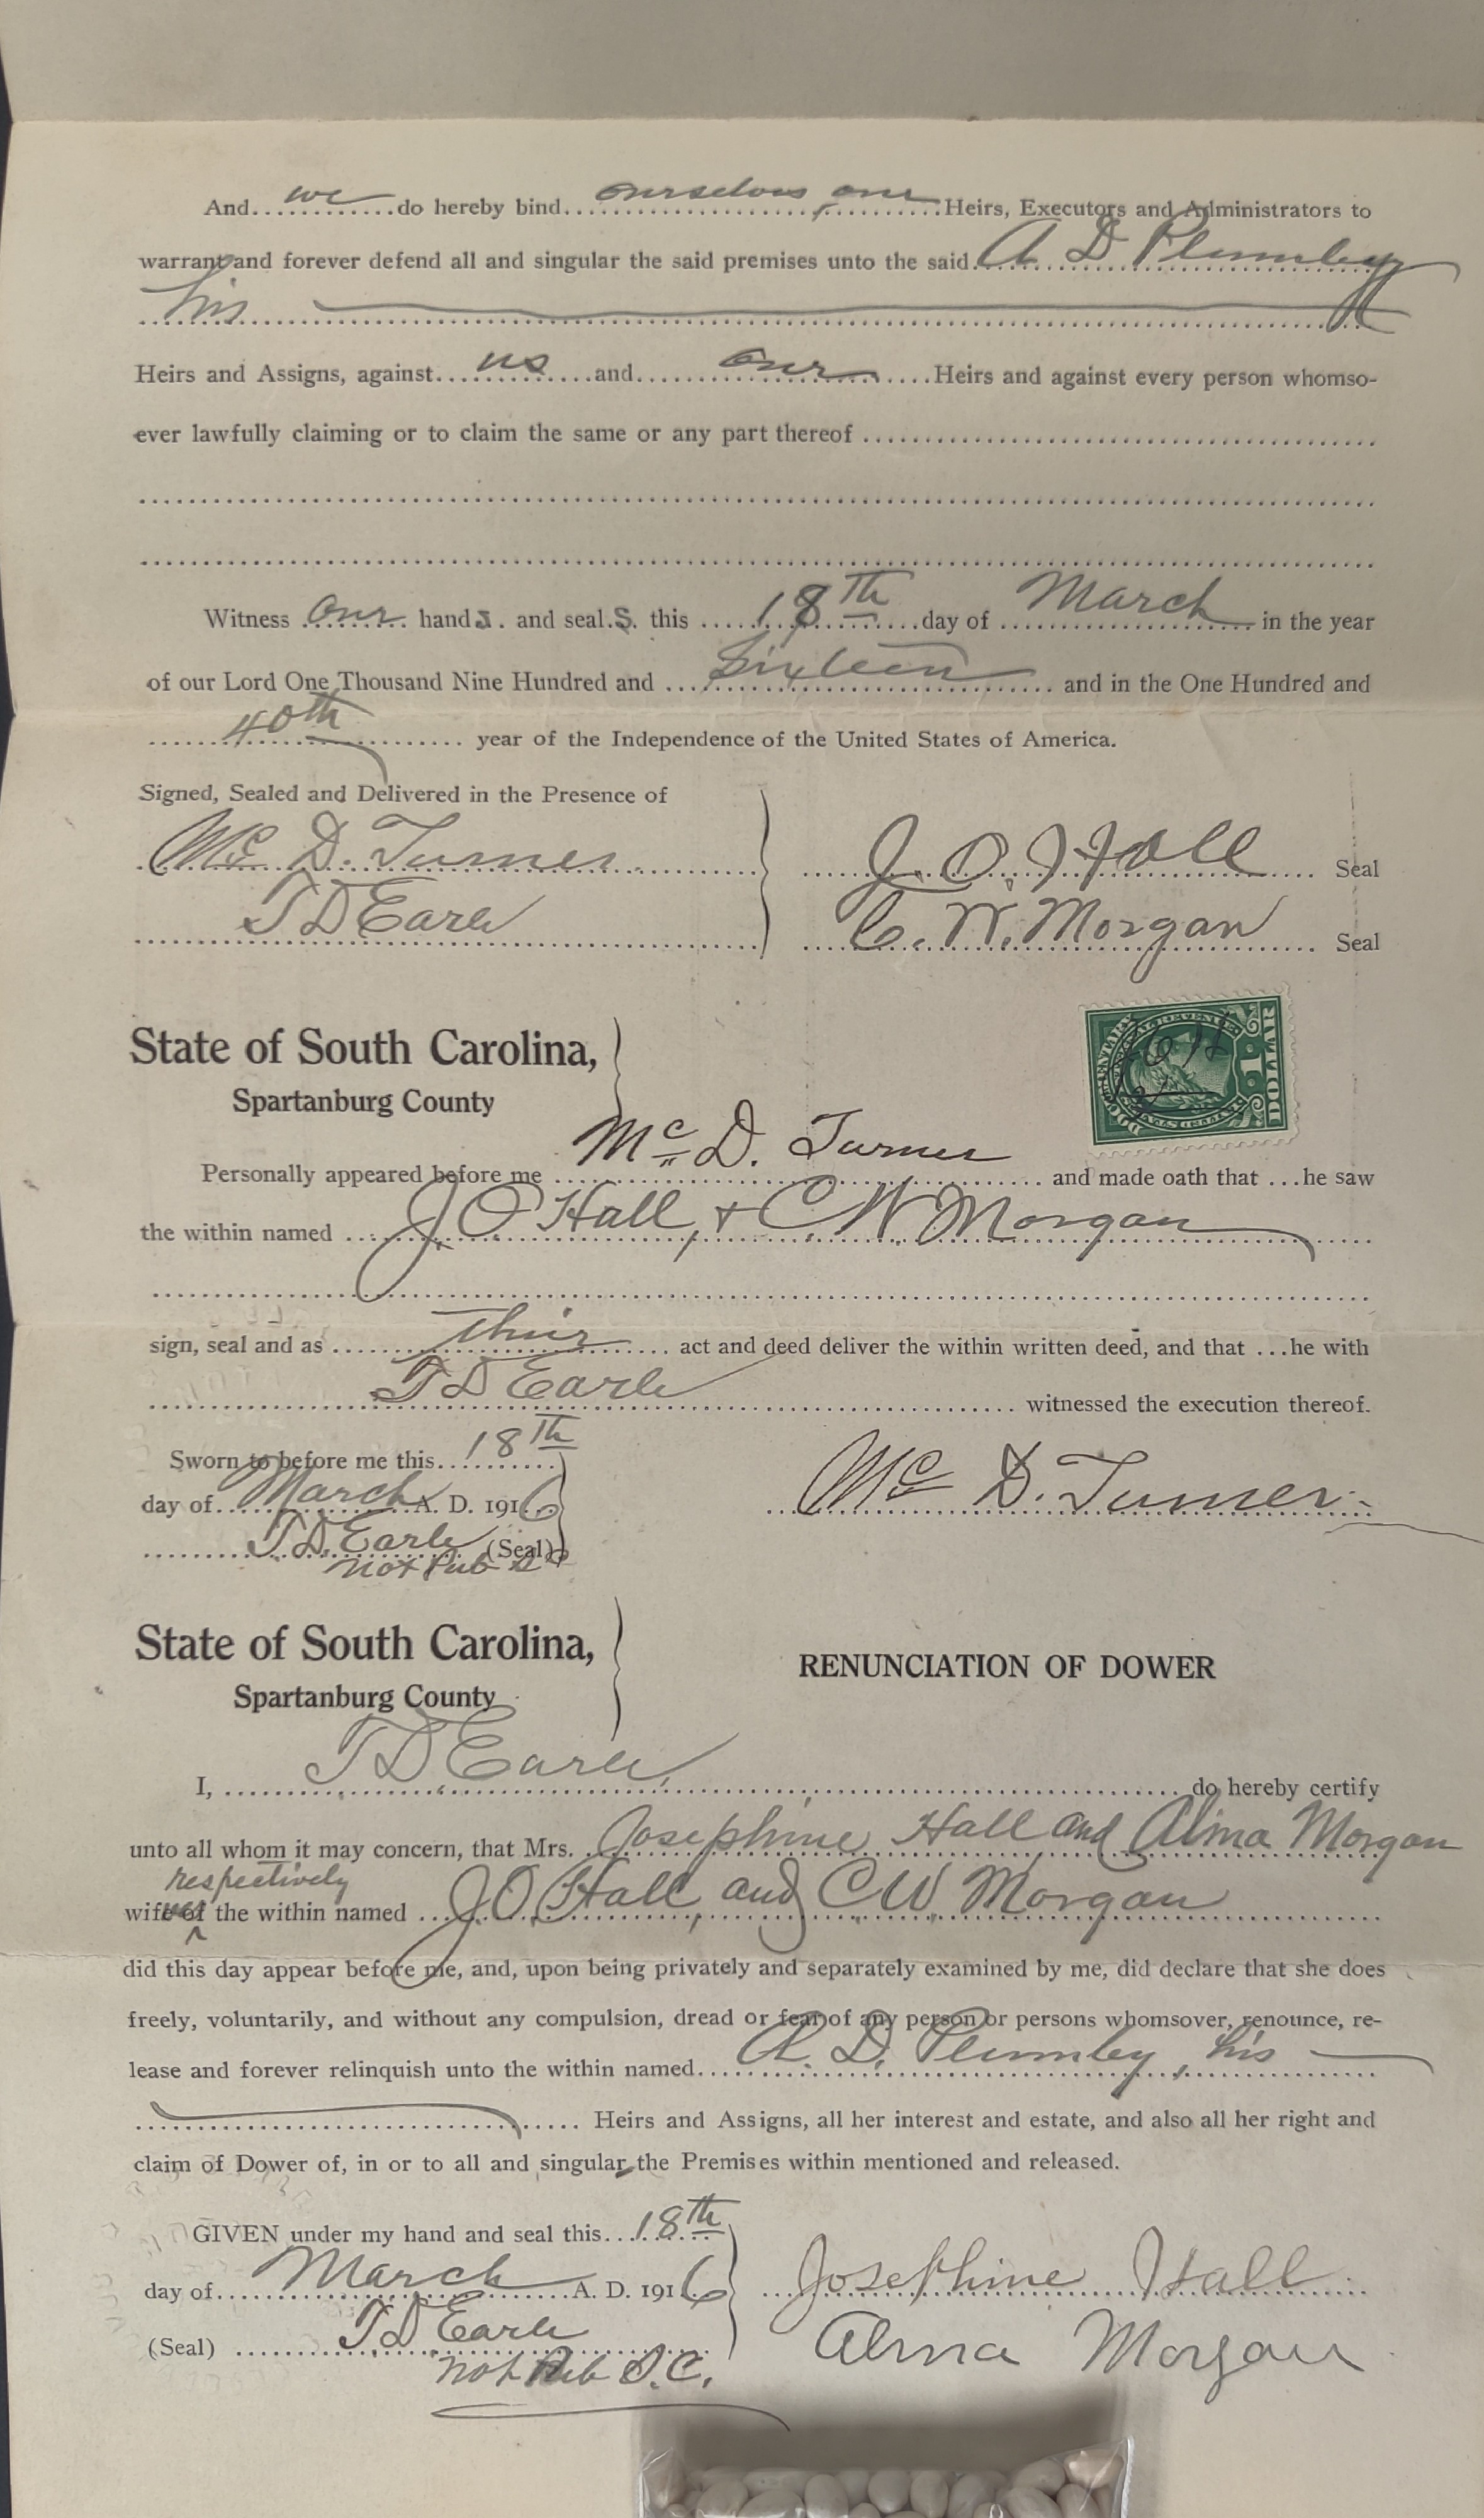 And we do hereby bind ourselves, our Heirs, Executors and Administrators to
warrant and forever defend all and singular the said premises unto the said A D Plumley
his
Heirs and Assigns, against us and our Heirs and against every person whomso-
ever lawfully claiming or to claim the same or any part thereof
Witness our hands. and seal.s. this 18th day of March in the year
of our Lord One Thousand Nine Hundred and Sixteen and in the One Hundred and
40th year of the Independence of the United States of America.
Signed, Sealed and Delivered in the Presence of
Mc D. Turner J. O. Hall Seal
T D Earle C. W. Morgan Seal
State of South Carolina,
Spartanburg County
1 DOLLAR
Personally appeared before me Mc D. Turner and made oath that ...he saw
the within named J O Hall, + C. W. Morgan
sign, seal and as their act and deed deliver the within written deed, and that ...he with
T D Earle witnessed the execution thereof.
Sworn to before me this 18th
day of March A. D. 1916
Mc D. Turner
T. D. Earle (Seal)
Not Pub S C
State of South Carolina,
Spartanburg County
RENUNCIATION OF DOWER
I, T D Earle, do hereby certify
unto all whom it may concern, that Mrs. Josephine Hall and Alma Morgan
respectively
wives the within named J. O. Hall, and C. W. Morgan
did this day appear before me, and, upon being privately and separately examined by me, did declare that she does
freely, voluntarily, and without any compulsion, dread or fear of any person or persons whomsover, renounce, re-
lease and forever relinquish unto the within named A. D. Plumley, his
Heirs and Assigns, all her interest and estate, and also all her right and
claim of Dower of, in or to all and singular the Premises within mentioned and released.
GIVEN under my hand and seal this 18th
day of March A. D. 1916 Josephine Hall
(Seal) T D Earle Alma Morgan
Not Pub S. C.